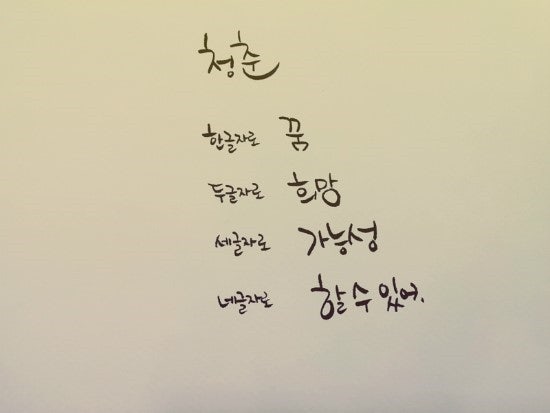 청춘
한글자로 꿈
두글자로 희망
세글자로 가능성
네글자로 할 수 있어.